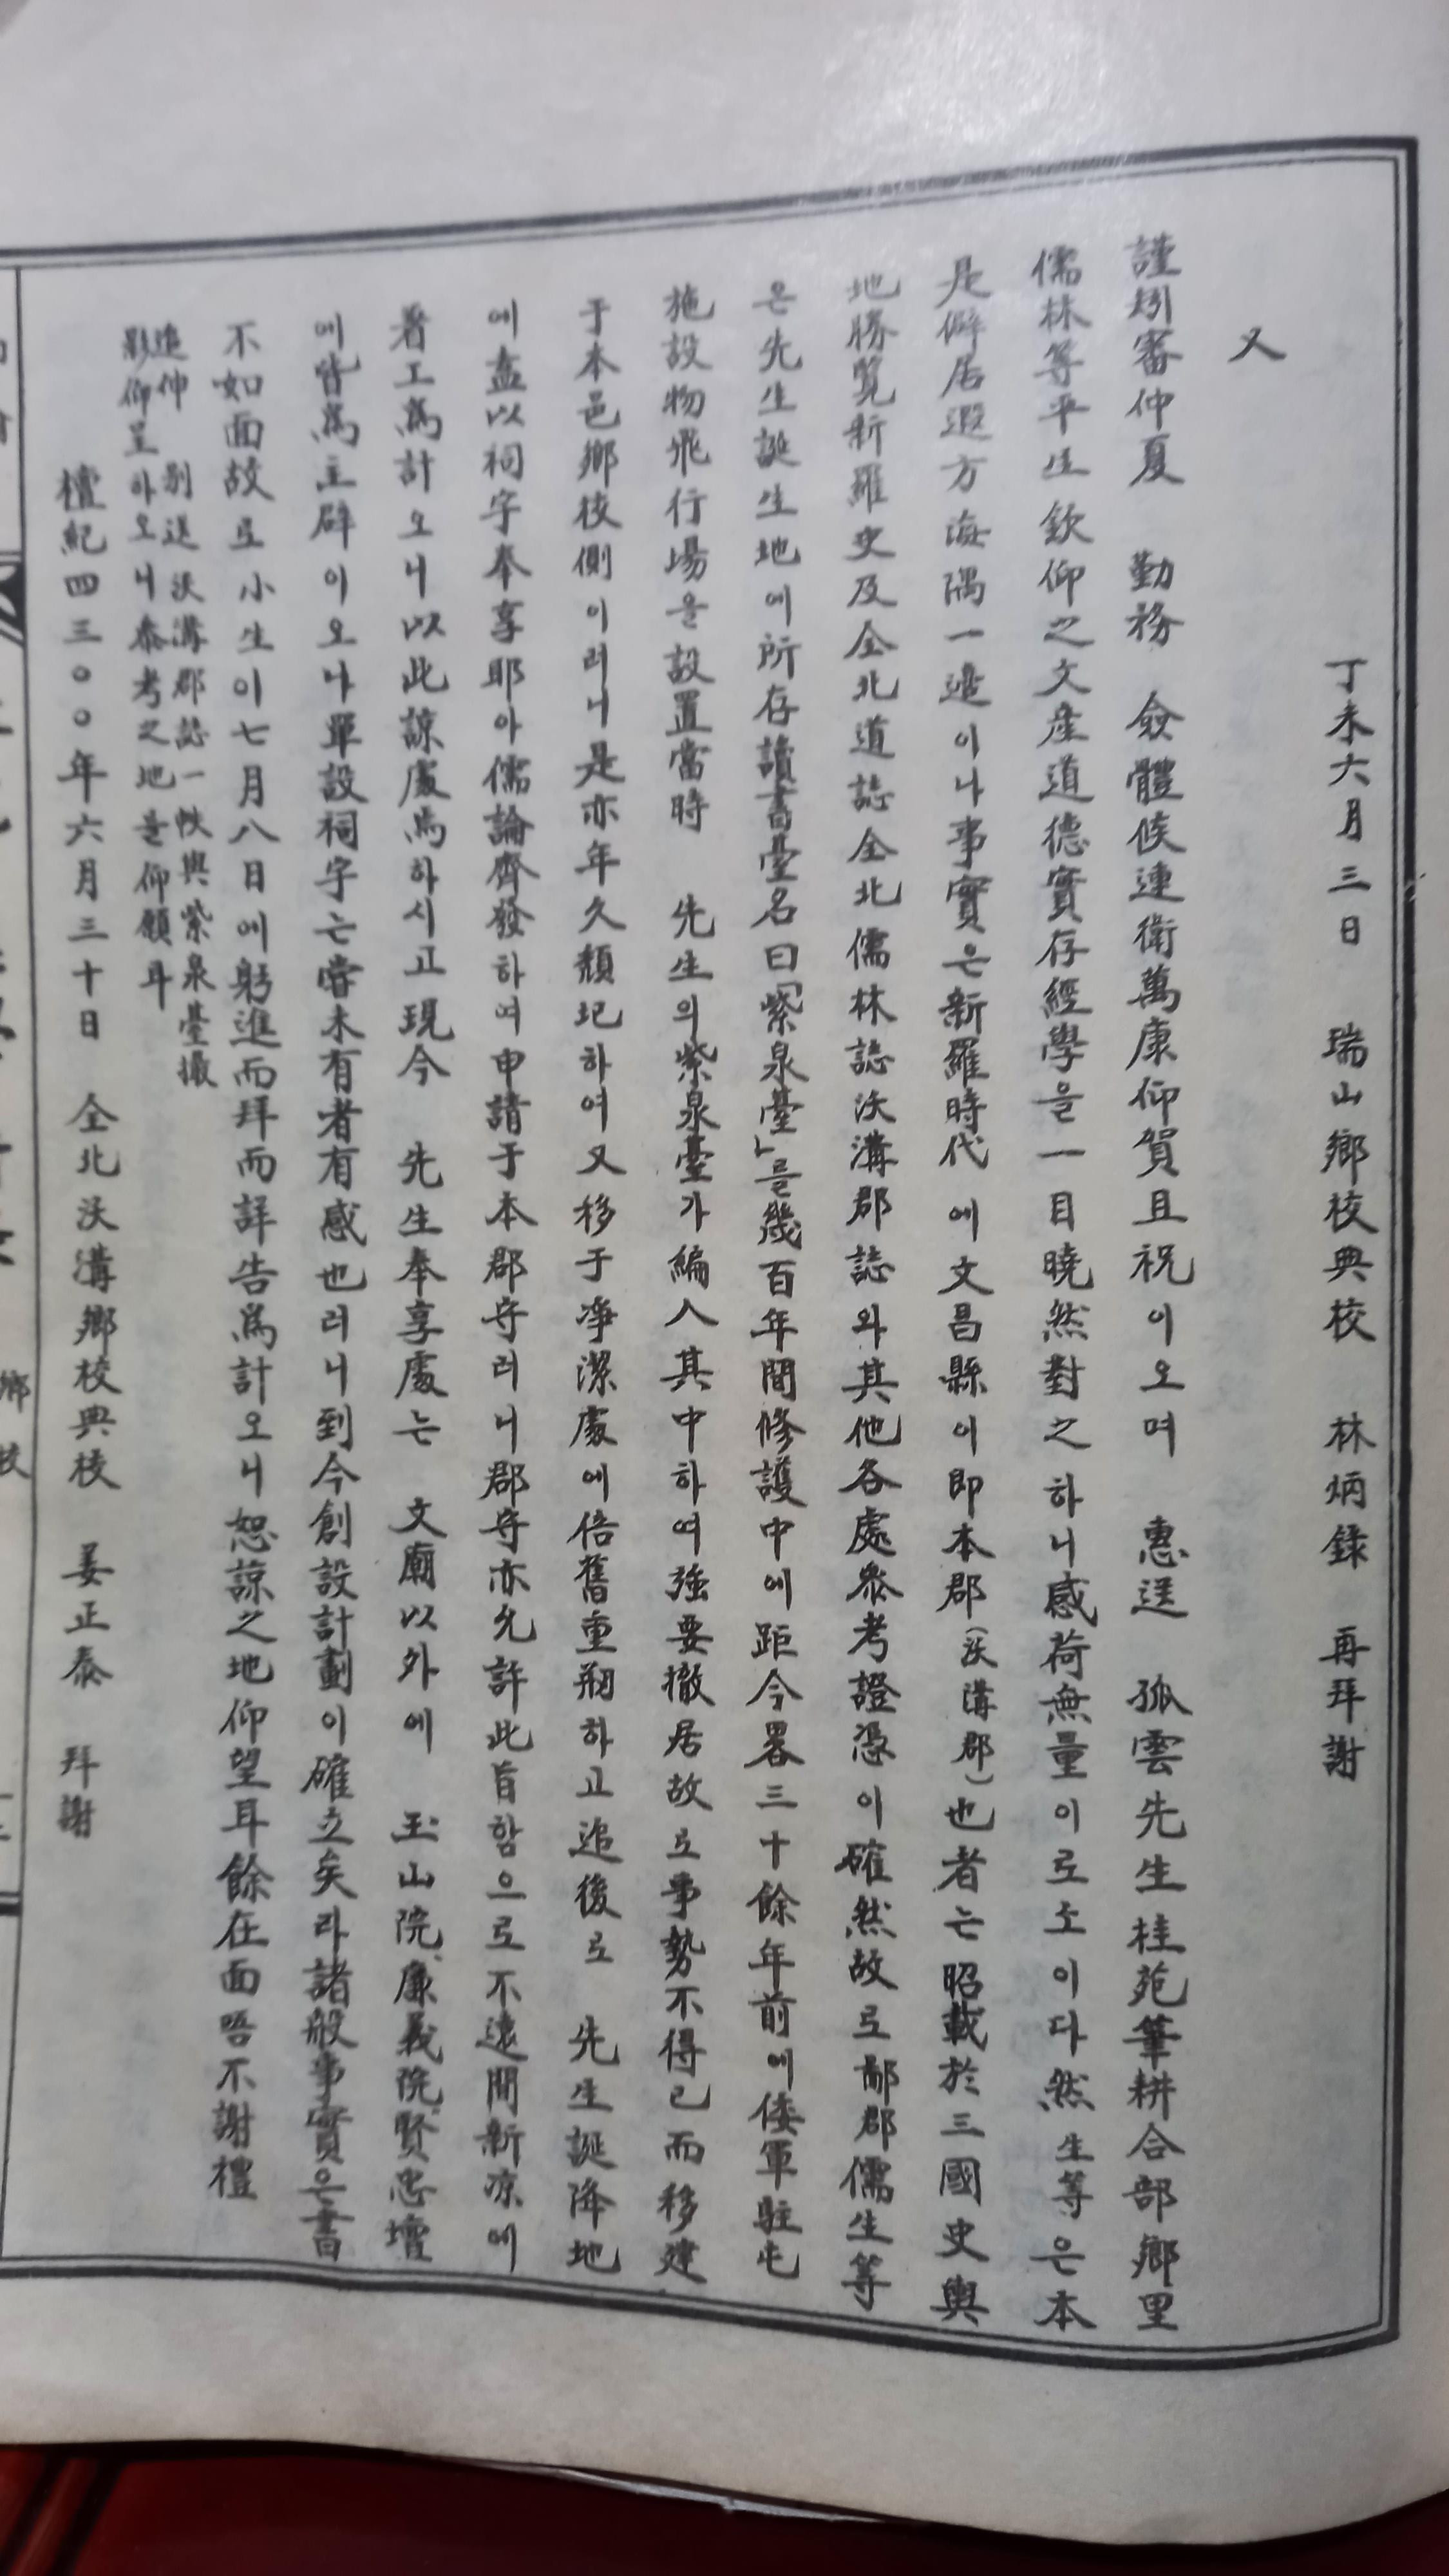 丁未六月三日 瑞山鄉校典校 林炳錄 再拜謝
又
謹紉審仲夏 勤務 僉體候連衛萬康仰賀且祝이오며 惠送 孤雲先生桂苑筆耕合部鄉里
儒林等平生欽仰之文産道德實存經學을一目曉然對之하니感荷無量이로소이다然生等은本
是僻居遐方海隅一邊이나事實은新羅時代에文昌縣이即本郡(沃溝郡)也者는昭載於三國史與
地勝覽新羅史及全北道誌全北儒林誌沃溝郡誌와其他各處參考證憑이確然故로鄙郡儒生等
은先生誕生地에所存讀書臺名曰「紫泉臺」를幾百年間修護中에距今畧三十餘年前에倭軍駐屯
施設物飛行場을設置當時 先生의紫泉臺가編入其中하여強要撤居故로事勢不得已而移建
于本邑鄉校側이러니是亦年久頹圮하여又移于凈潔處에倍舊重刱하고追後로 先生誕降地
에盍以祠宇奉享耶아儒論齊發하여申請于本郡守러니郡守亦允許此旨함으로不遠間新凉에
着工爲計오니以此諒處焉하시고現今 先生奉享處는 文廟以外에 玉山院,廉義院,賢忠壇
에皆爲主辟이오나單設祠宇는嘗未有者有感也러니到今創設計劃이確立矣라諸般事實은書
不如面故로小生이七月八日에躬進而拜而詳告爲計오니恕諒之地仰望耳餘在面晤不謝禮
追伸 別送沃溝郡誌一帙與紫泉臺撮
影仰呈하오니叅考之地를仰願耳
檀紀四三〇〇年六月三十日 全北沃溝鄉校典校 姜正泰 拜謝
鄉校